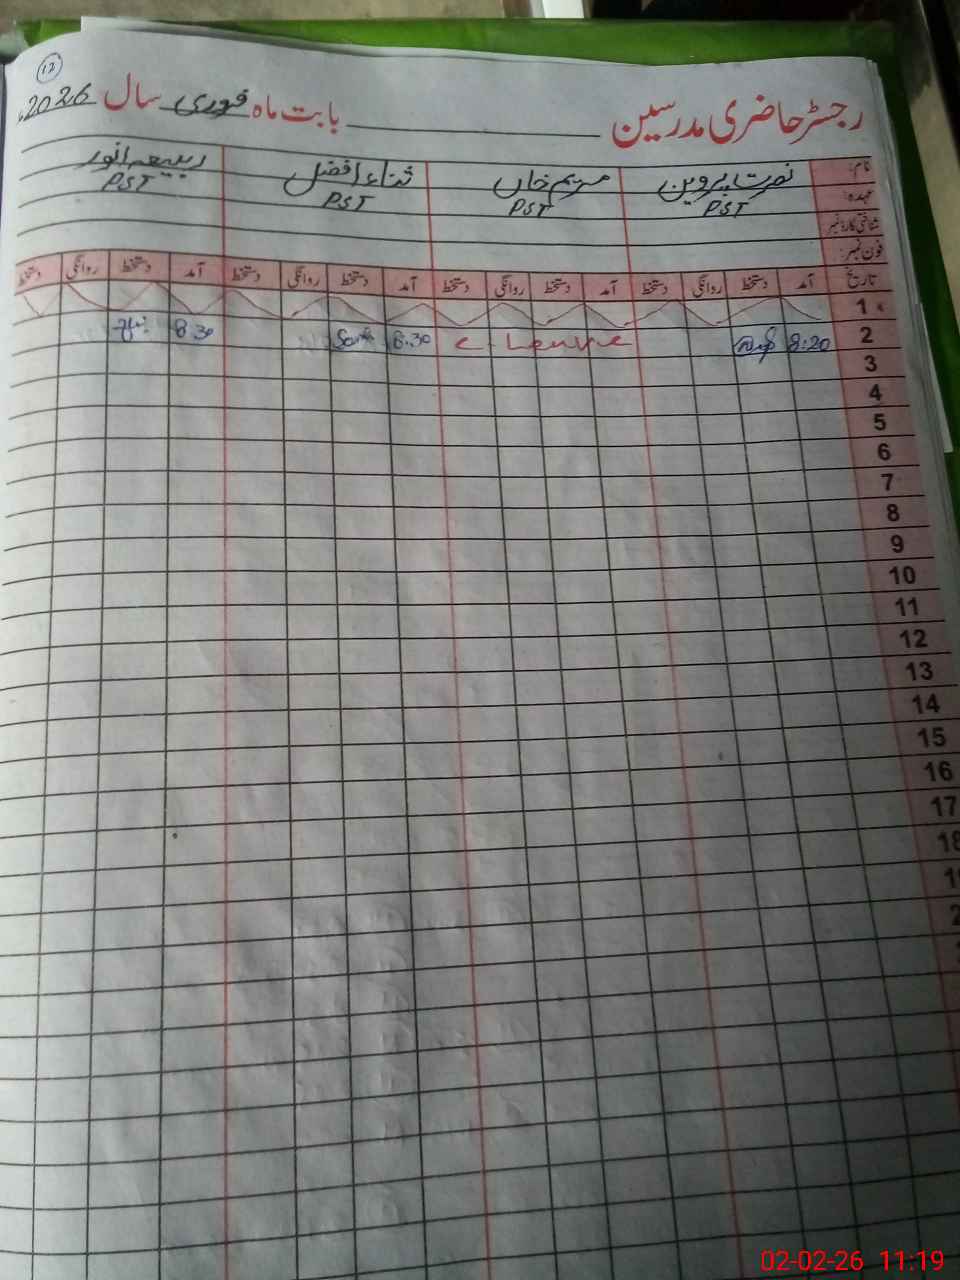 12
رجسٹر حاضری مدرسین بابت ماہ فروری سال 2026ء
نام: نصرت پروین مریم خاں ثناء افضل ربیعہ انور
عہدہ: PST PST PST PST
شناختی کارڈ نمبر
فون نمبر:
تاریخ آمد دستخط روانگی دستخط آمد دستخط روانگی دستخط آمد دستخط روانگی دستخط آمد دستخط روانگی دستخط
1
2 8:20 c Leave 8.30 8.30
3
4
5
6
7
8
9
10
11
12
13
14
15
16
17
18
02-02-26 11:19